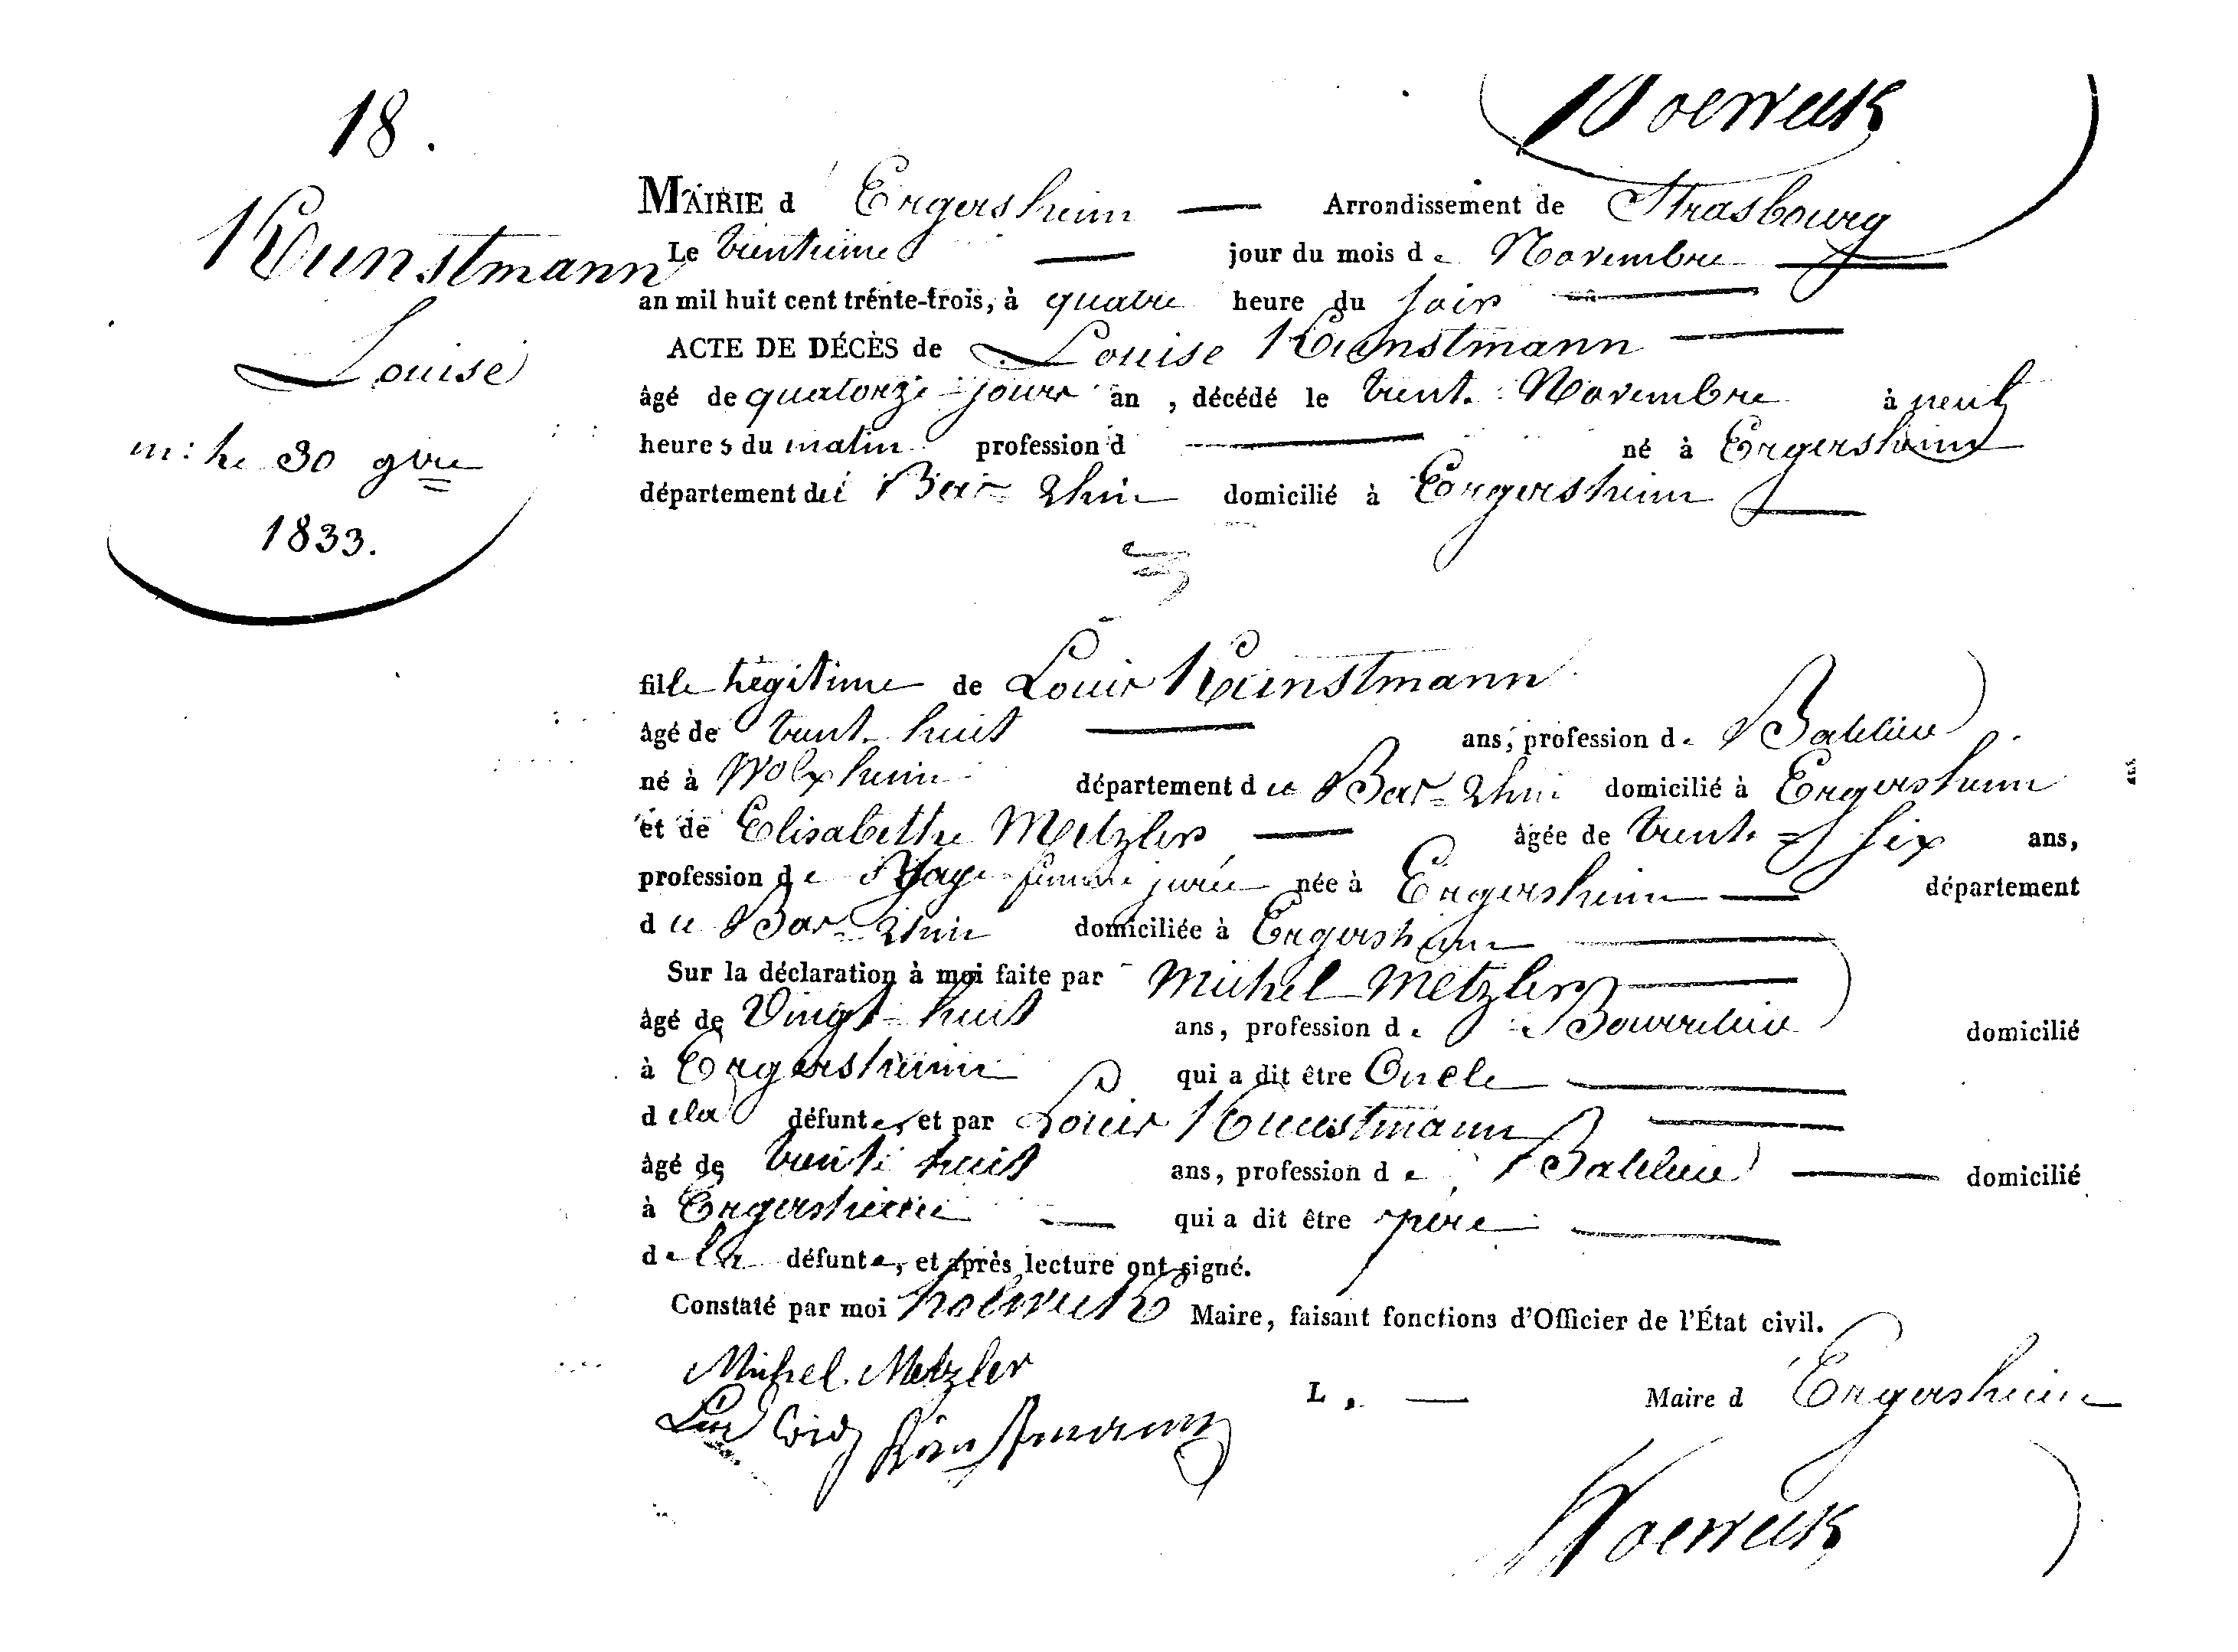 18.
Kunstmann
Louise
m: le 30 9bre
1833.
MAIRIE d'Ergersheim Arrondissement de Strasbourg
Le trentième jour du mois de Novembre
an mil huit cent trente-trois, à quatre heure du soir
ACTE DE DÉCÈS de Louise Kunstmann
âgé de quatorze jours an, décédé le trente Novembre à neuf
heures du matin profession d né à Ergersheim
département du Bas-Rhin domicilié à Ergersheim
fille légitime de Louis Kunstmann
âgé de trente huit ans, profession de Battelier
né à Wolxheim département du Bas-Rhin domicilié à Ergersheim
et de Elisabethe Metzler âgée de trente-six ans,
profession de Sage-femme jurée née à Ergersheim département
du Bas-Rhin domiciliée à Ergersheim
Sur la déclaration à moi faite par Michel Metzler
âgé de Vingt-huit ans, profession de Bourrelier domicilié
à Ergersheim qui a dit être Oncle
de la défunte, et par Louis Kunstmann
âgé de trente huit ans, profession de Battelier domicilié
à Ergersheim qui a dit être père
de la défunte, et après lecture ont signé.
Constaté par moi Maire, faisant fonctions d'Officier de l'État civil.
Michel Metzler
L. Maire d'Ergersheim
Ludwig Kunstmann